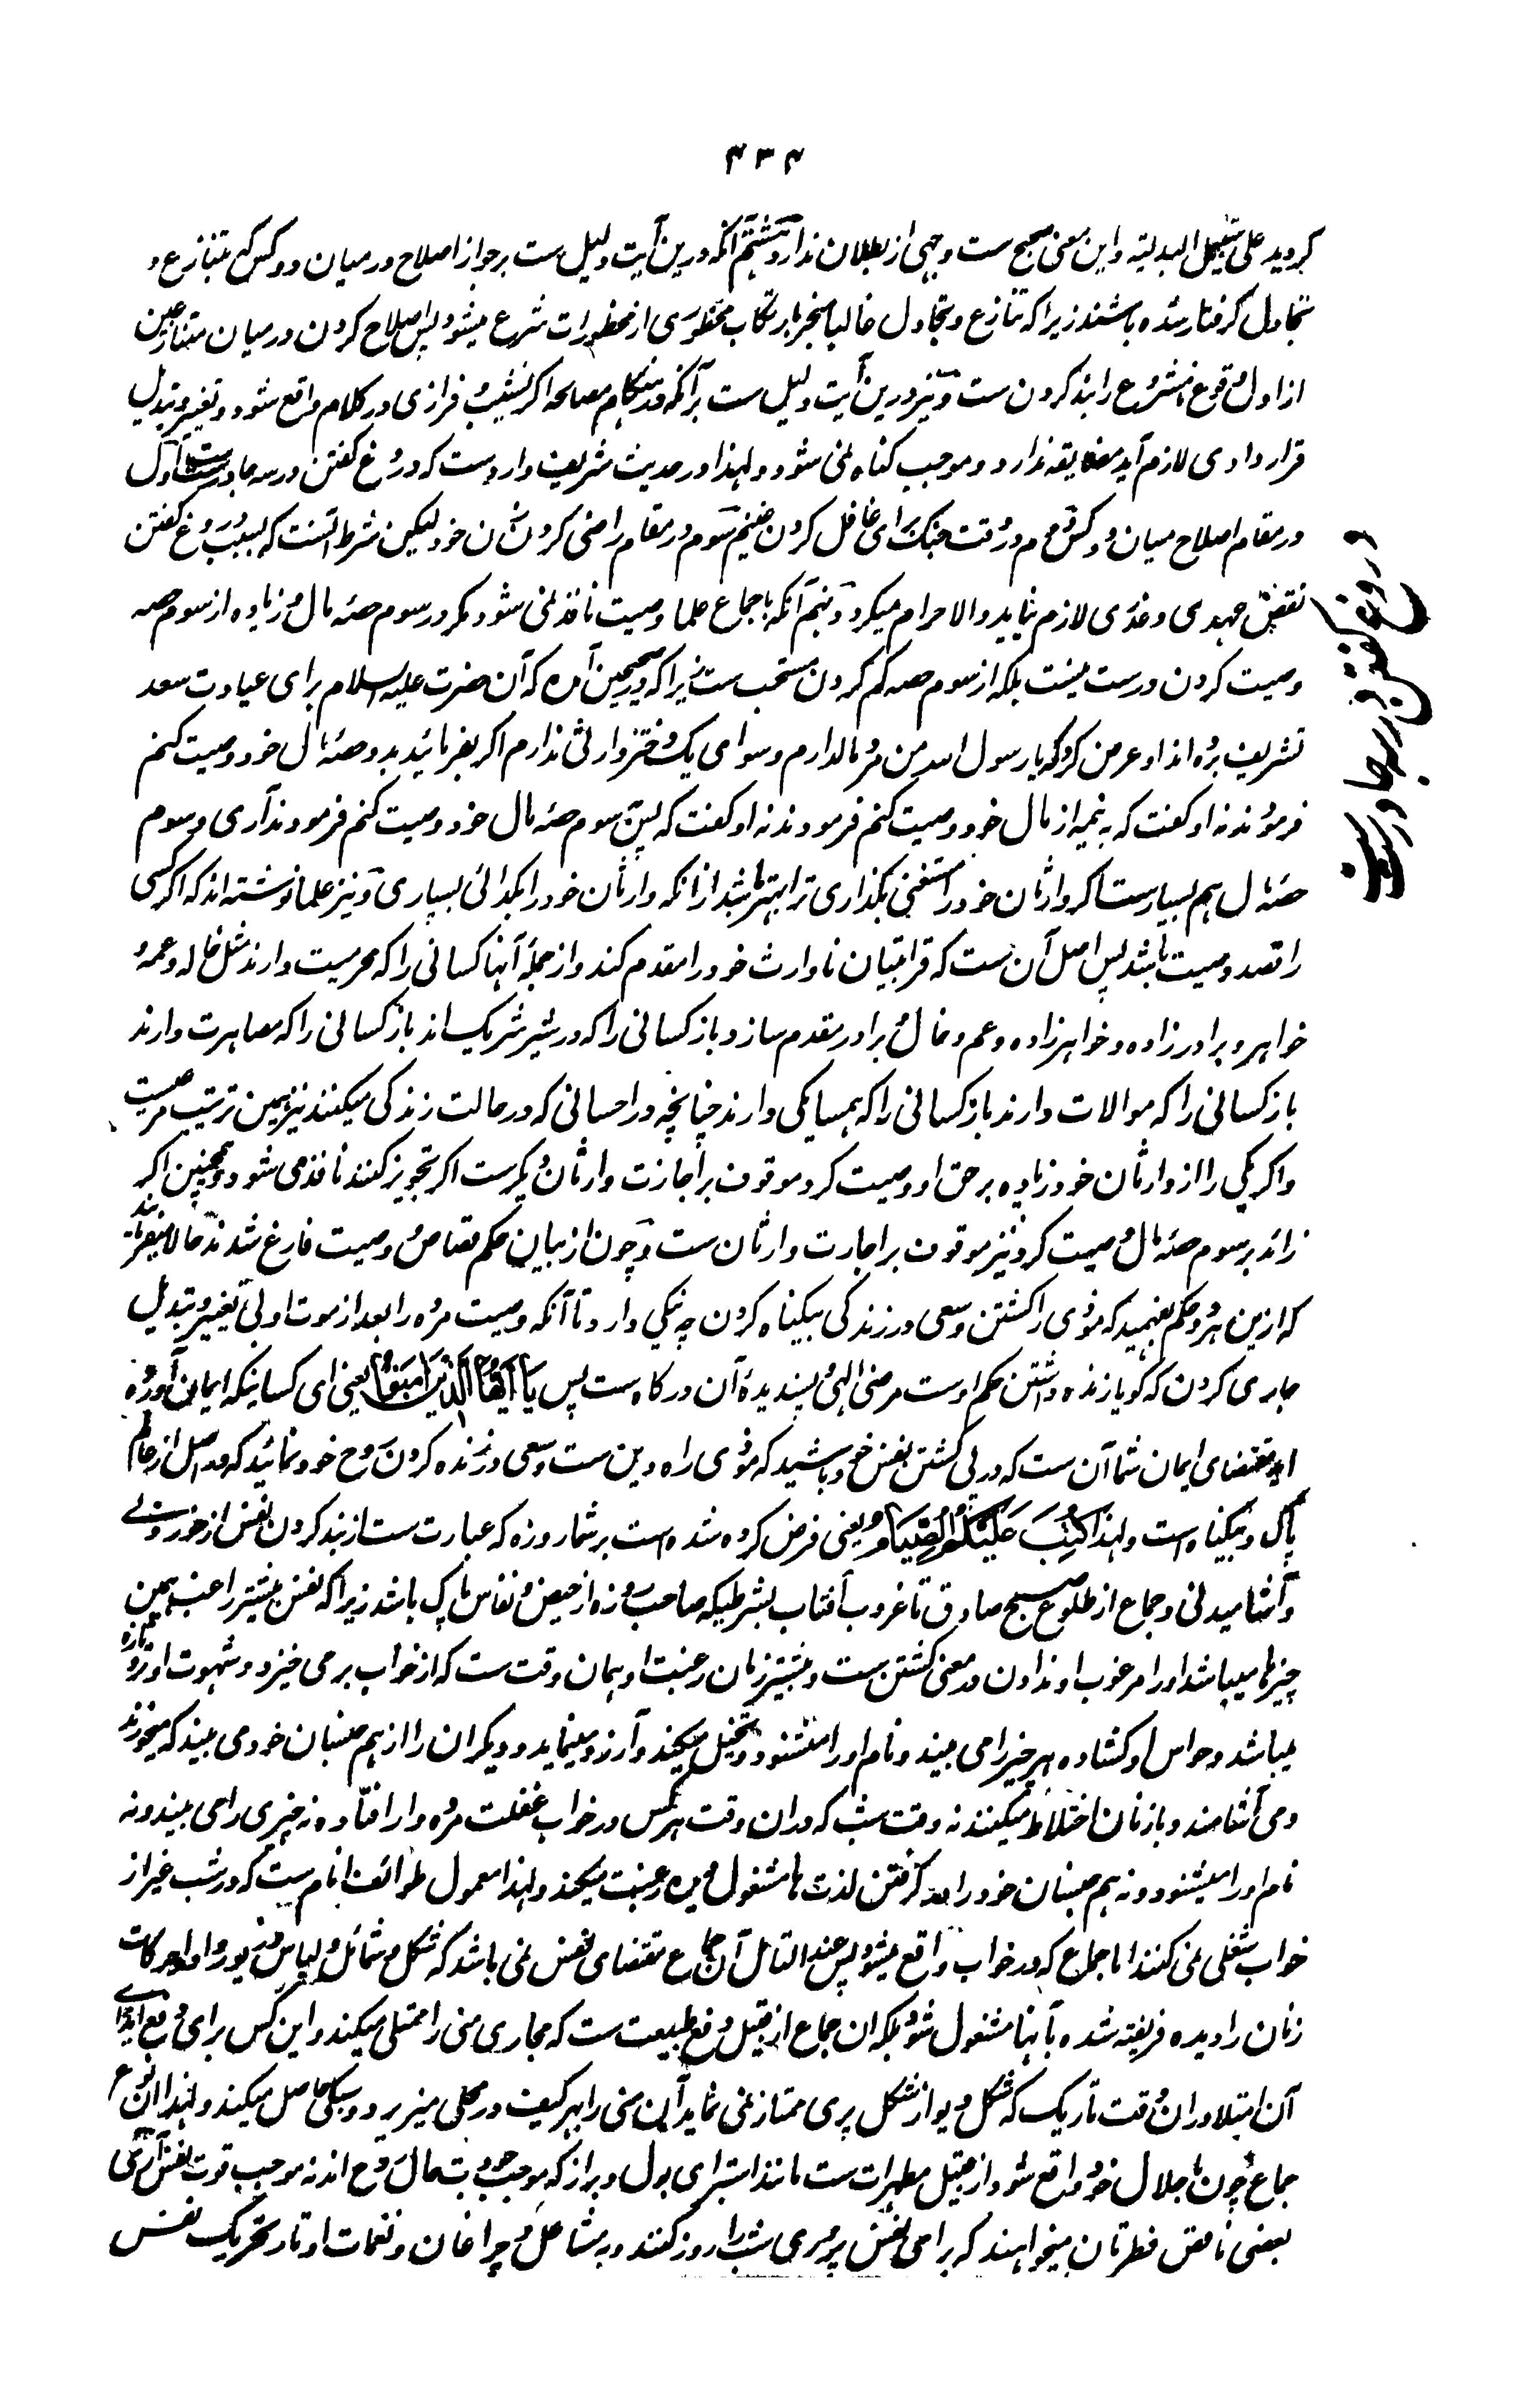 ۴۳۴
کردید علی سبیل البدلیة و این معنی صحیح ست وجهی از بطلان ندارد هشتم آنکه درین آیت دلیل ست بر جواز اصلاح در میان دو کس که بتنازع و
تجادل گرفتار شده باشند زیرا که تنازع و تجادل غالبا منجر بارتکاب محظوری از محظورات شرع میشود پس اصلاح کردن در میان متنازعین
از اول وقوع نامشروع را بند کردن ست و نیز درین آیت دلیل ست بر آنکه در هنگام مصالحه اگر نشیب و فرازی در کلام واقع شود و تغییر و تبدیل
قراردادی لازم آید مضایقه ندارد و موجب گناه نمی شود و لهذا در حدیث شریف وارد ست که دروغ گفتن در سه جا درست ست اول
در مقام اصلاح میان دو کس دوم در وقت جنگ برای غافل کردن غنیم سوم در مقام راضی کردن زنان خود لیکن شرط آنست که بسبب دروغ گفتن
نقض عهدی و غدری لازم نیاید و الا حرام میگردد و نهم آنکه باجماع علما وصیت نافذ نمی شود مگر در سوم حصۀ مال و زیاده از سوم حصه
وصیت کردن درست نیست بلکه از سوم حصه کم کردن مستحب ست زیرا که در صحیحین آمده که آن حضرت علیه السلام برای عیادت سعد
تشریف برده اند او عرض کرد که یا رسول الله من مرد مالدارم و سوای یک دختر وارثی ندارم اگر بفرمائید بدو حصۀ مال خود وصیت کنم
فرمودند نه او گفت که به نیمه از مال خود وصیت کنم فرمودند نه او گفت که پس سوم حصۀ مال خود وصیت کنم فرمودند آری و سوم
حصۀ مال هم بسیار ست اگر وارثان خود را مستغنی بگذاری ترا بهتر باشد از آنکه وارثان خود را بگدائی بسپاری و نیز علما نوشته اند که اگر کسی
را قصد وصیت باشد پس اصل آن ست که قرابتیان نا وارث خود را مقدم کند و از جملۀ آنها کسانی را که محرمیت دارند مثل خاله و عمه و
خواهر و برادر زاده و خواهر زاده و عم و خال و برادر مقدم سازد و باز کسانی را که در شیر شریک اند باز کسانی را که مصاهرت دارند
باز کسانی را که موالات دارند باز کسانی را که همسایگی دارند چنانچه در احسانی که در حالت زندگی میکنند نیز همین ترتیب مرعیست
و اگر یکی را از وارثان خود زیاده بر حق او وصیت کرد موقوف بر اجازت وارثان دیگرست اگر تجویز کنند نافذ می شود و همچنین اگر
زائد بر سوم حصۀ مال وصیت کرد نیز موقوف بر اجازت وارثان ست و چون از بیان حکم قصاص و وصیت فارغ شدند حالا میفرمایند
که ازین هر دو حکم بفهمید که موذی را کشتن و سعی در زندگی بیگناه کردن چه نیکی دارد تا آنکه وصیت مرده را بعد از موت او بی تغییر و تبدیل
جاری کردن که گویا زنده داشتن حکم اوست مرضی الهی و پسندیدۀ آن درگاه ست پس یَا أَیُّهَا الَّذِینَ آمَنُوا یعنی ای کسانیکه ایمان آورده
اید مقتضای ایمان شما آن ست که در پی کشتن نفس خود باشید که موذی راه دین ست و سعی در زنده کردن روح خود نمائید که در اصل از عالم
پاک و بیگناه است و لهذا کُتِبَ عَلَیْکُمُ الصِّیَامُ یعنی فرض کرده شده است بر شما روزه که عبارت ست از بند کردن نفس از خوردنی
و آشامیدنی و جماع از طلوع صبح صادق تا غروب آفتاب بشرطیکه صاحب روزه از حیض و نفاس پاک باشد زیرا که نفس بیشتر راغب بهمین
چیزها میباشد او را مرغوب او ندادن در معنی کشتن ست و بیشتر زمان رغبت او همان وقت ست که از خواب بر می خیزد و شهوت او تر و تازه
میباشد و حواس او کشاده هر چیز را می بیند و نام او را میشنود و تخیل میکند و آرزو مینماید و دیگران را از هم جنسان خود می بیند که میخورند
و می آشامند و با زنان اختلاط میکنند نه وقت شب که دران وقت هر کس در خواب غفلت مرده وار افتاده نه چیزی را می بیند و نه
نام او را میشنود و نه هم جنسان خود را در گرفتن لذت ها مشغول دیده رغبت میکند و لهذا معمول طوائف انام ست که در شب غیر از
خواب شغلی نمی کنند اما جماع که در خواب واقع میشود پس عند التامل آن جماع مقتضای نفس نمی باشد که شکل و شمائل و لباس و زیور و ادا و حرکات
زنان را دیده فریفته شده بآنها مشغول شود بلکه آن جماع از قبیل دفع طبیعت ست که مجاری منی را ممتلی میکند و این کس برای دفع ایذای
آن امتلا دران وقت تاریک که شکل دیو از شکل پری ممتاز نمی نماید آن منی را بهر کیف در محلی میریزد و سبکی حاصل میکند و لهذا آن نوع
جماع چون با حلال خود واقع شود از قبیل مطهرات ست مانند استبرای بول و براز که موجب جودت حال روح اند نه موجب قوت نفس آری
بعضی ناقص فطرتان میخواهند که برای نفس پروری شب را روز کنند و به مشاعل و چراغان و نغمات اوتار تحریک نفس
دروغ گفتن در سه جا درست ست